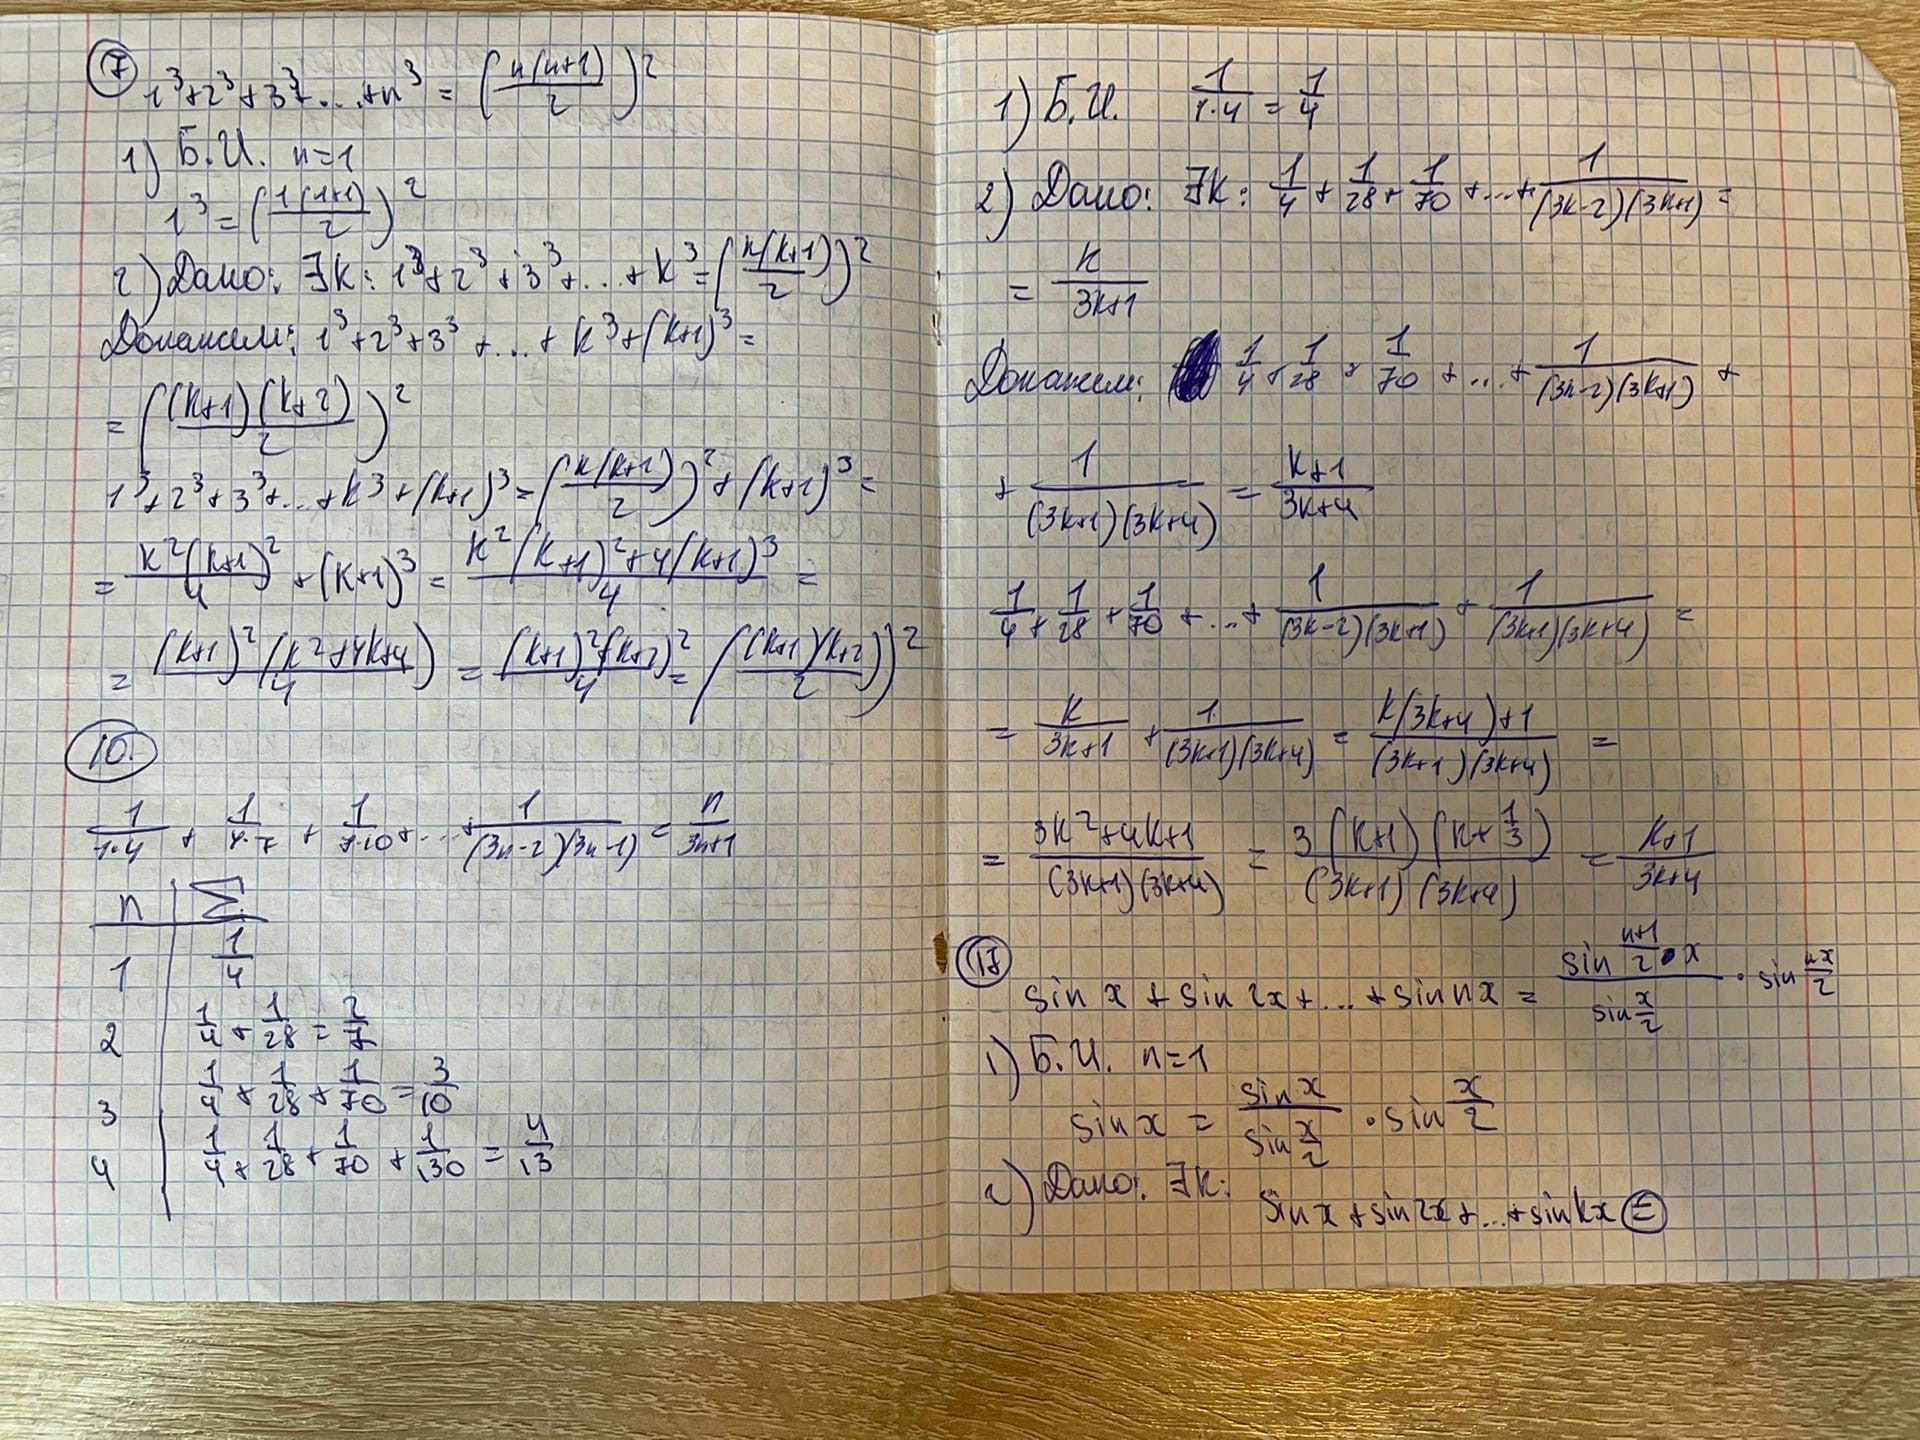 7
1³+2³+3³+...+n³ = (n(n+1)/2)²
1) Б.И. n=1
1³ = (1(1+1)/2)²
2) Дано: ∃k: 1³+2³+3³+...+k³ = (k(k+1)/2)²
Докажем: 1³+2³+3³+...+k³+(k+1)³ =
= ((k+1)(k+2)/2)²
1³+2³+3³+...+k³+(k+1)³ = (k(k+1)/2)² + (k+1)³ =
= k²(k+1)²/4 + (k+1)³ = (k²(k+1)²+4(k+1)³)/4 =
= (k+1)²(k²+4k+4)/4 = (k+1)²(k+2)²/4 = ((k+1)(k+2)/2)²
10.
1/(1·4) + 1/(4·7) + 1/(7·10) + ... + 1/((3n-2)(3n-1)) = n/(3n+1)
n | Σ
1 | 1/4
2 | 1/4 + 1/28 = 2/7
3 | 1/4 + 1/28 + 1/70 = 3/10
4 | 1/4 + 1/28 + 1/70 + 1/130 = 4/13
1) Б.И. 1/(1·4) = 1/4
2) Дано: ∃k: 1/4 + 1/28 + 1/70 + ... + 1/((3k-2)(3k+1)) =
= k/(3k+1)
Докажем: 1/4 + 1/28 + 1/70 + ... + 1/((3k-2)(3k+1)) +
+ 1/((3k+1)(3k+4)) = (k+1)/(3k+4)
1/4 + 1/28 + 1/70 + ... + 1/((3k-2)(3k+1)) + 1/((3k+1)(3k+4)) =
= k/(3k+1) + 1/((3k+1)(3k+4)) = (k(3k+4)+1)/((3k+1)(3k+4)) =
= (3k²+4k+1)/((3k+1)(3k+4)) = 3(k+1)(k+1/3)/((3k+1)(3k+4)) = (k+1)/(3k+4)
17
sin x + sin 2x + ... + sin nx = (sin (n+1)/2 · x)/(sin x/2) · sin nx/2
1) Б.И. n=1
sin x = (sin x)/(sin x/2) · sin x/2
2) Дано: ∃k:
sin x + sin 2x + ... + sin kx =